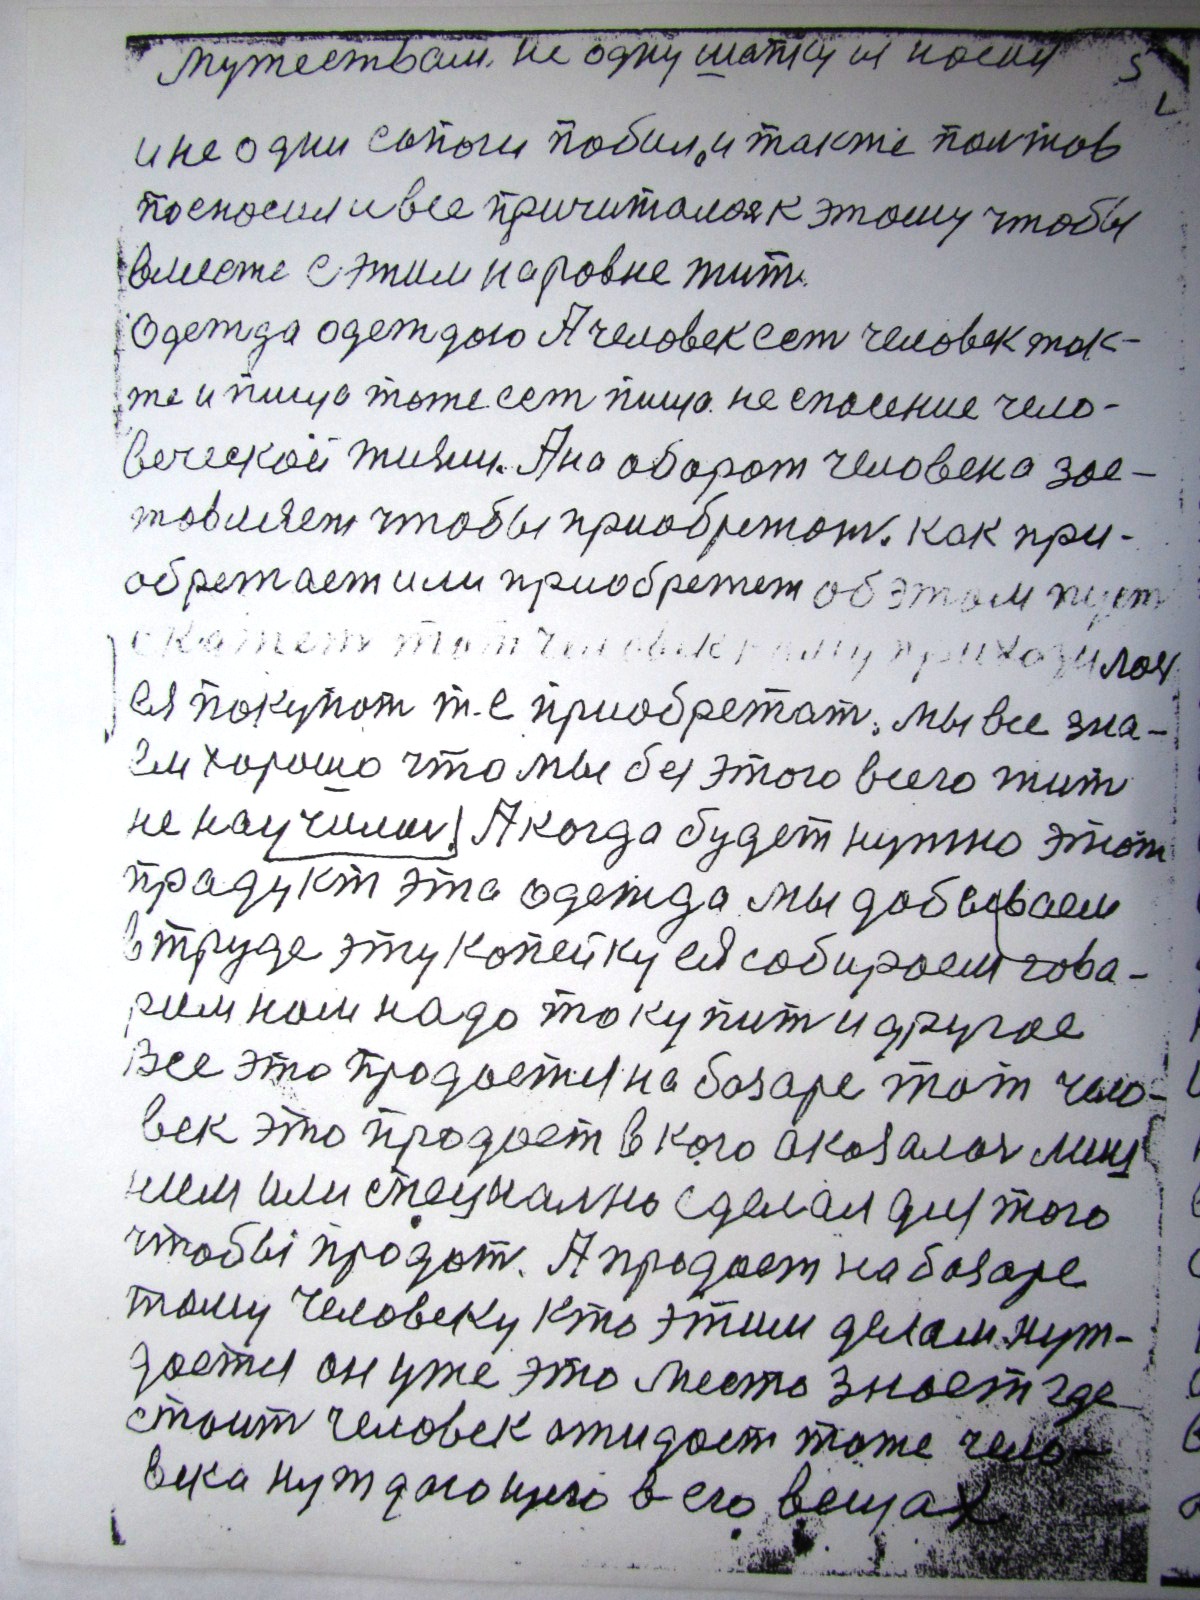 мужествам. не одну шапку я носил 5
и не одни сапоги побил, и также
посносил и все причиталося к этому чтобы
вместе с этим наровне жит.
Одежда одеждою А человек ест человек так-
же и пища тоже ест пища. не спасение чело-
веческой жизни. А на оборот человека зас-
тавляет чтобы приобретат. как при-
обретает или приобретет об этом пуст
скажет тот человек кому приходилос
ея покупат т.е приобретат. мы все зна-
ем хорошо что мы без этого всего жит
не научилис! А когда будет нужно этот
прадукт эта одежда мы добываем
в труде эту копейку ея собираем гова-
рим нам надо то купит и другое
Все это продается на базаре тот чело-
век это продает в кого аказалос лиш
нем или специално сделал для того
чтобы продат. А продает на базаре
тому человеку кто этим делам нуж-
дается он уже это место знает где
стоит человек ажидает тоже чело-
века нуждающего в его вещах